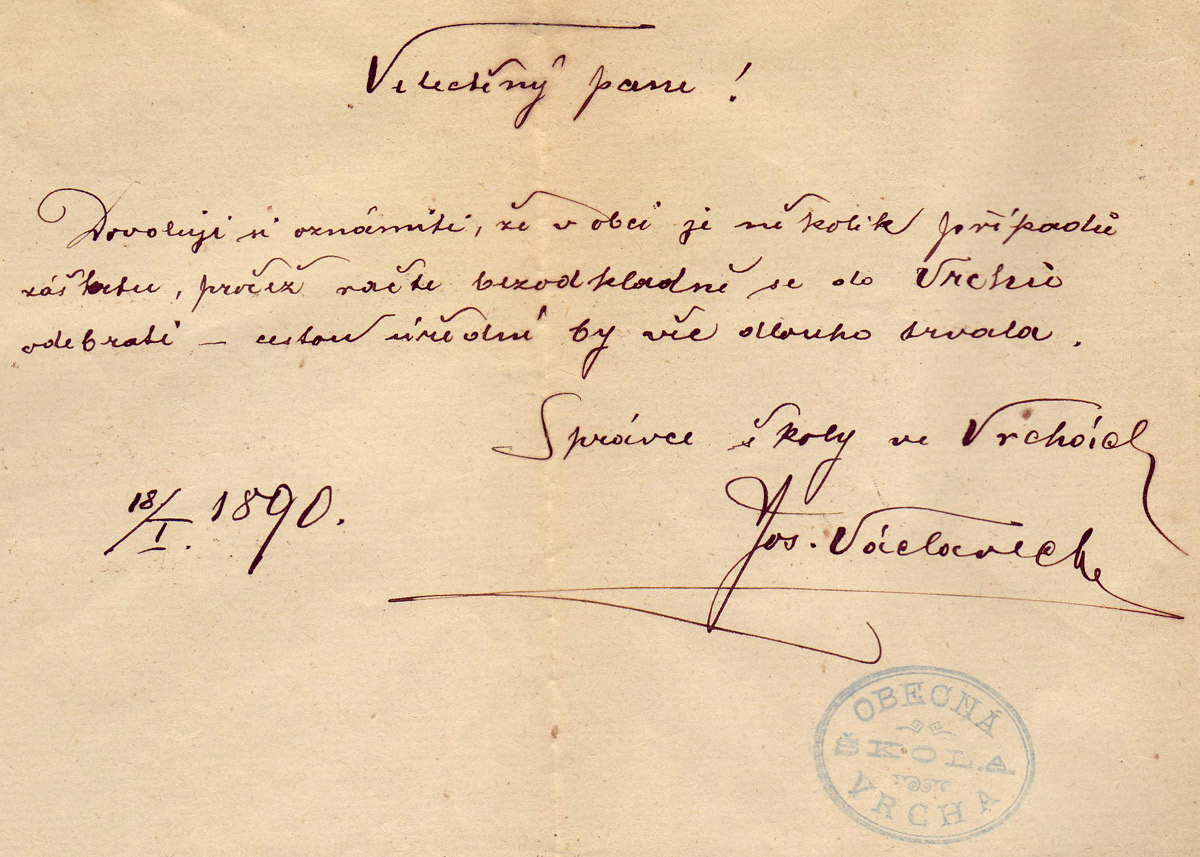 Veletěný pane!
Dovoluji si oznámiti, že v obci je několik případů
záškrtu, pročež račte bezodkladně se do Vrchů
odebrati – cestou úřední by vše dlouho trvala.
Správce školy ve Vrchách
18/I. 1890.
Jos. Václavech
OBECNÁ
ŠKOLA
VRCHA